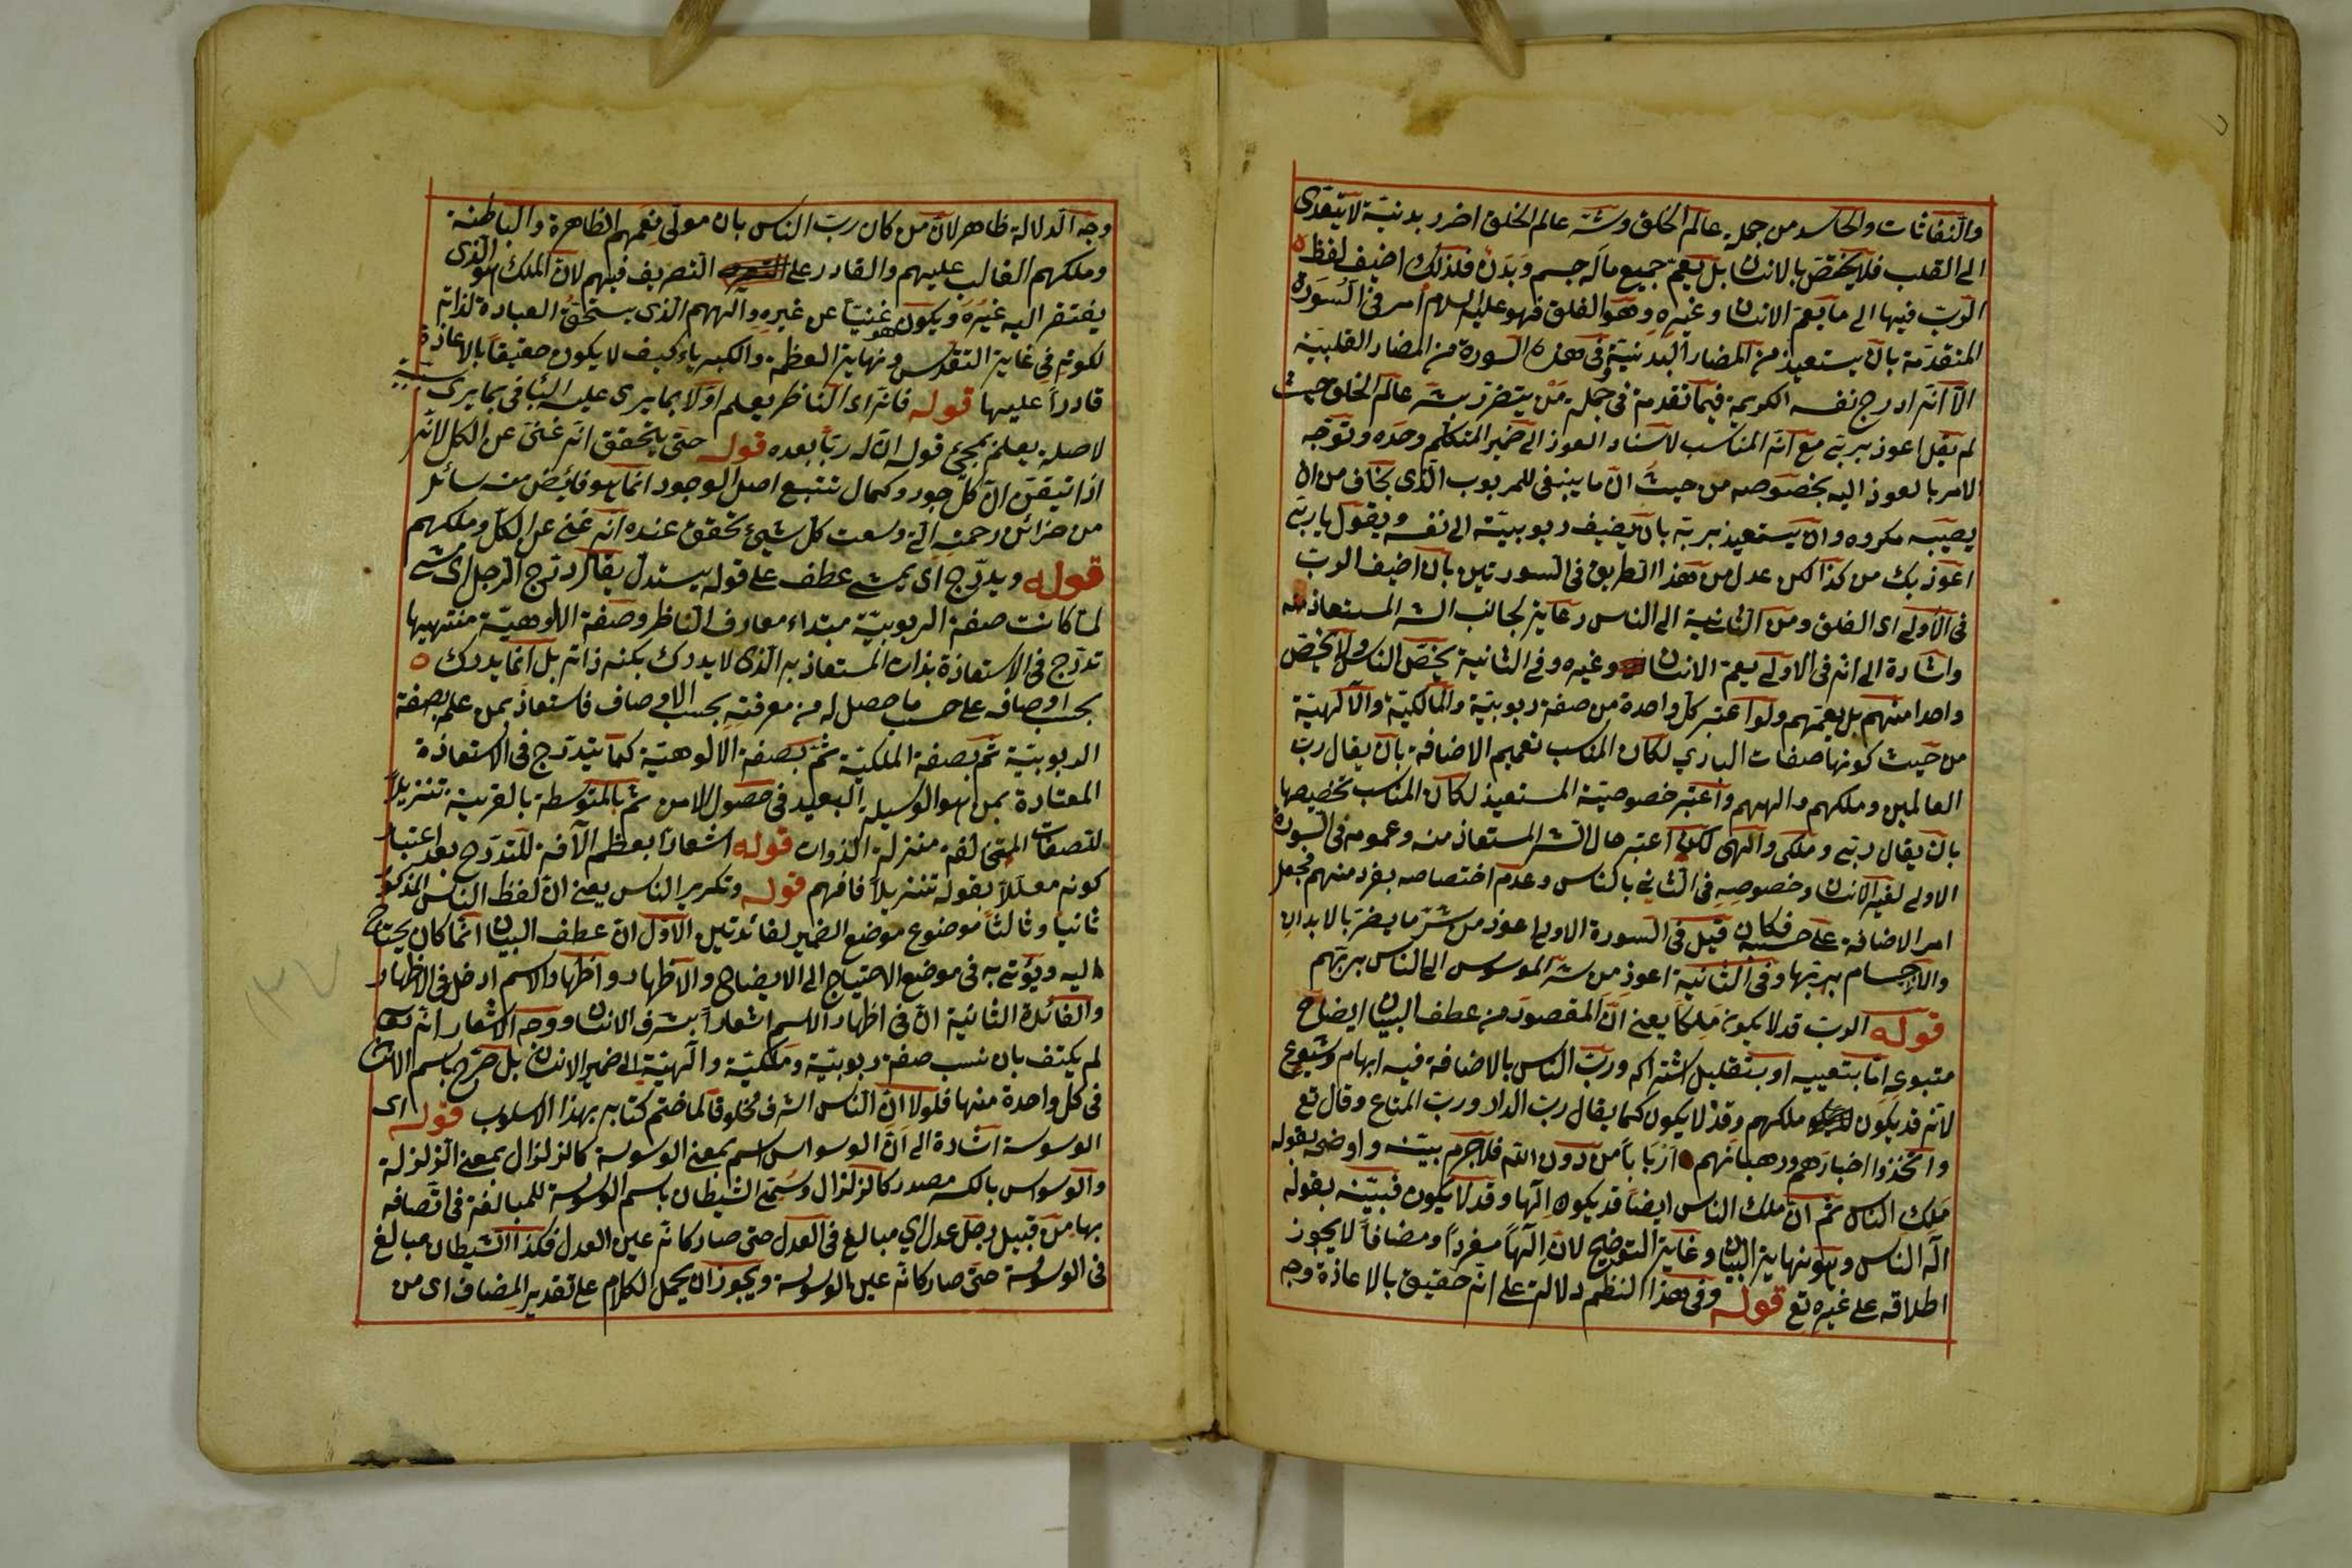 والنفاثات والحاسد من جملة عالم الخلق وشر عالم الخلق اضرر بدنية لا يتعدى
الى القلب فلا يختص بالانسان بل يعم جميع ما له جسم وبدن فلذلك اضيف لفظ
الرب فيها الى ما يعم الانسان وغيره وهو الفلق فهو عليه السلام امر فى السورة
المتقدمة بان يستعيذ من المضار البدنية وفى هذه السورة من المضار القلبية
الا انه ادرج نفسه الكريمة فيما تقدمة فى جملة من يتضرر بشر عالم الخلق حيث
لم يقل اعوذ بربى مع انه المناسب لاسناد العوذ الى ضمير المتكلم وحده وتوجه
الامر بالعوذ اليه بخصوصه من حيث ان ما ينبغى للمربوب الذى يخاف من ان
يصيبه مكروه وان يستعيذ بربه بان يضيف ربوبيته الى نفسه ويقول يا ربى
اعوذ بك من كذا لكن عدل من هذا الطريق فى السورتين بان اضيف الرب
فى الاولى الى الفلق ومن الثانية الى الناس رعاية لجانب الشر المستعاذ منه
واشارة الى انه فى الاولى يعم الانسان وغيره وفى الثانية يخص الناس ولا يخص
واحدا منهم بل يعمهم ولو اعتبر كل واحدة من صفة ربوبية والمالكية والالهية
من حيث كونها صفات البارى لكان المناسب تعميم الاضافة بان يقال رب
العالمين وملكهم والههم واعتبر خصوصية المستعيذ لكان المناسب تخصيصها
بان يقال ربى وملكى والهى لكن اعتبر حال الشر المستعاذ منه وعمومه فى السورة
الاولى لغير الانسان وخصوصه فى الثانى بالناس وعدم اختصاصه بفرد منهم فجعل
امر الاضافة على حسبه فكان قيل فى السورة الاولى اعوذ من شر ما يضر بالابدان
والاجسام بربها وفى الثانية اعوذ من شر الموسوس الى الناس بربهم
قوله الرب قد لا يكون ملكا يعنى ان المقصود من عطف البيان ايضاح
متبوعه اما بتعيينه او بتقليل اشتراكه ورب الناس بالاضافة فيه ابهام وشيوع
لانه قد يكون ملكهم وقد لا يكون كما يقال رب الدار ورب المتاع وقال تع
واتخذوا احبارهم ورهبانهم اربابا من دون الله فلا جرم بينه واوضحه بقوله
ملك الناس ثم ان ملك الناس ايضا قد يكون الها وقد لا يكون فبينه بقوله
اله الناس وهو نهاية البيان وغاية التوضيح لان الها مفردا ومضافا لا يجوز
اطلاقه على غيره تع قوله وفى هذا النظم دلالة على انه حقيق بالاعاذة وجه
وجه الدلالة ظاهر لان من كان رب الناس بان مولى نعمهم الظاهرة والباطنة
وملكهم الغالب عليهم والقادر على التصريف فيهم لان الملك هو الذى
يفتقر اليه غيره ويكون هو غنيا عن غيره والههم الذى يستحق العبادة لذاته
لكونه فى غاية التقدس ونهاية العظمة والكبرياء كيف لا يكون حقيقا بالاعاذة
قادرا عليها قوله فانه اى الناظر يعلم اولا بما يرى عليه
لاصلة يعلم بمجئ قوله ان له ربا بعده قوله حتى يتحقق انه غنى عن الكل لانه
اذا تيقن ان كل جود وكمال تتبع اصل الوجود انما هو فائض منه سائل
من خزائن رحمته التى وسعت كل شئ تحقق عنده انه غنى عن الكل وملكهم
قوله ويدرج اى يمشى عطف على قوله يستدل يقال درج الرجل اى مشى
لما كانت صفة الربوبية مبتداء معارف الناظر وصفة الالوهية منتهيها
تدرج فى الاستعاذة بذات المستعاذ به الذى لا يدرك بكنه ذاته بل انما يدرك
بحسب اوصافه على حسب ما حصل له من معرفته بحسب الاوصاف فاستعاذ بمن علم بصفة
الربوبية ثم بصفة الملكية ثم بصفة الالوهية كما يتدرج فى الاستعاذة
المعتادة بمن هو الوسيلة البعيد فى حصول الامن ثم بالمتوسطة بالقريبة تنزيلا
للصفات المختلفة منزلة الذوات قوله اشعارا بعظم الآفة للتدرج بعد اعتبار
كونه معللا بقوله تنزيلا فافهم قوله وتكرير الناس يعنى ان لفظ الناس المذكور
ثانيا وثالثا موضوع موضع الضمير لفائدتين الاول ان عطف البيان انما كان يحتاج
اليه ويؤتى به فى موضع الاحتياج الى الايضاح والاظهار واظهار الاسم ادخل فى الاظهار
والفائدة الثانية ان فى اظهار الاسم اشعارا بشرف الانسان ووجه الاشعار انه تع
لم يكتف بان نسب صفة ربوبية وملكية والهية الى ضمير الانسان بل صرح باسم الانسان
فى كل واحدة منها فلولا ان الناس اشرف مخلوقا لما ختم كتابه بهذا الاسلوب قوله اى
الوسوسة اشارة الى ان الوسواس اسم بمعنى الوسوسة كالزلزال بمعنى الزلزلة
والوسواس بالكسر مصدر كالزلزال وسمى الشيطان باسم الوسوسة للمبالغة فى اتصافه
بها من قبيل رجل عدل اى مبالغ فى العدل حتى صار كانه عين العدل فكذا الشيطان مبالغ
فى الوسوسة حتى صار كانه عين الوسوسة ويجوز ان يحمل الكلام على تقدير المضاف اى من